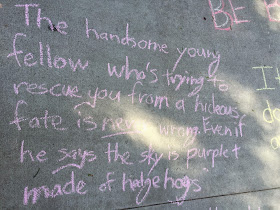 The handsome young
fellow who's trying to
rescue you from a hideous
fate is never wrong. Even if
he says the sky is purple +
made of hedgehogs
BE